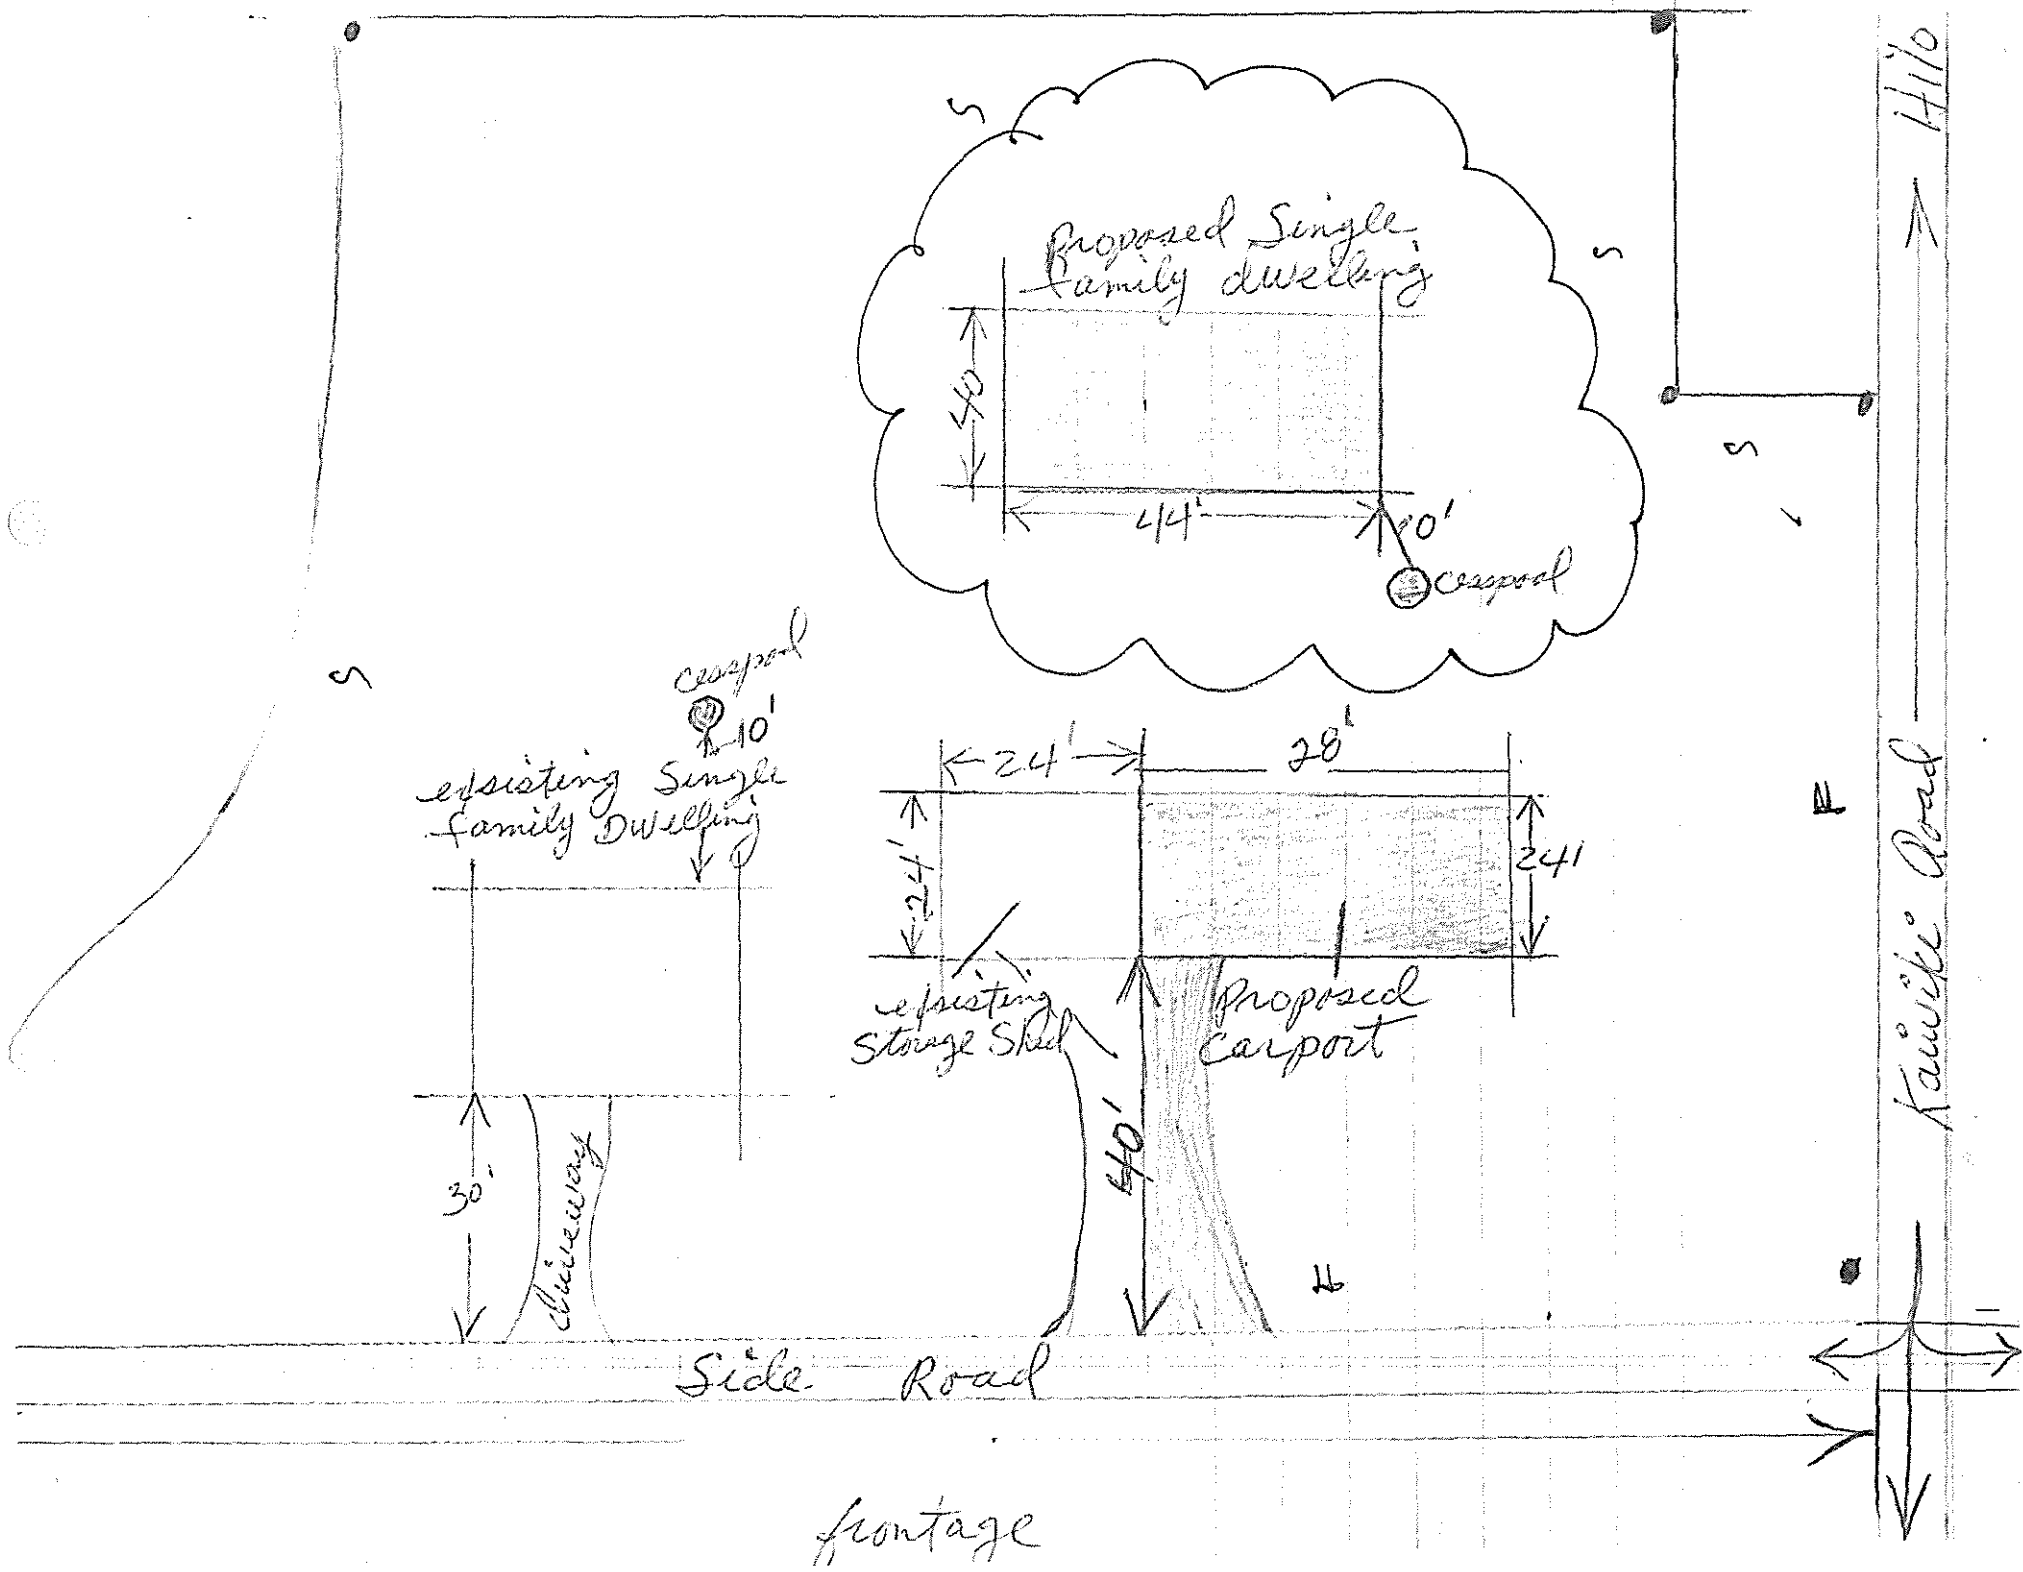 Hilo
S
S
Proposed Single
family dwelling
40
44'
10'
cesspool
S
S
cesspool
10'
exsisting Single
family Dwelling
24'
28'
24'
24'
F
Kaiwiki Road
exsisting
Storage Shed
Proposed
carport
40'
30'
driveway
F
Side Road
frontage